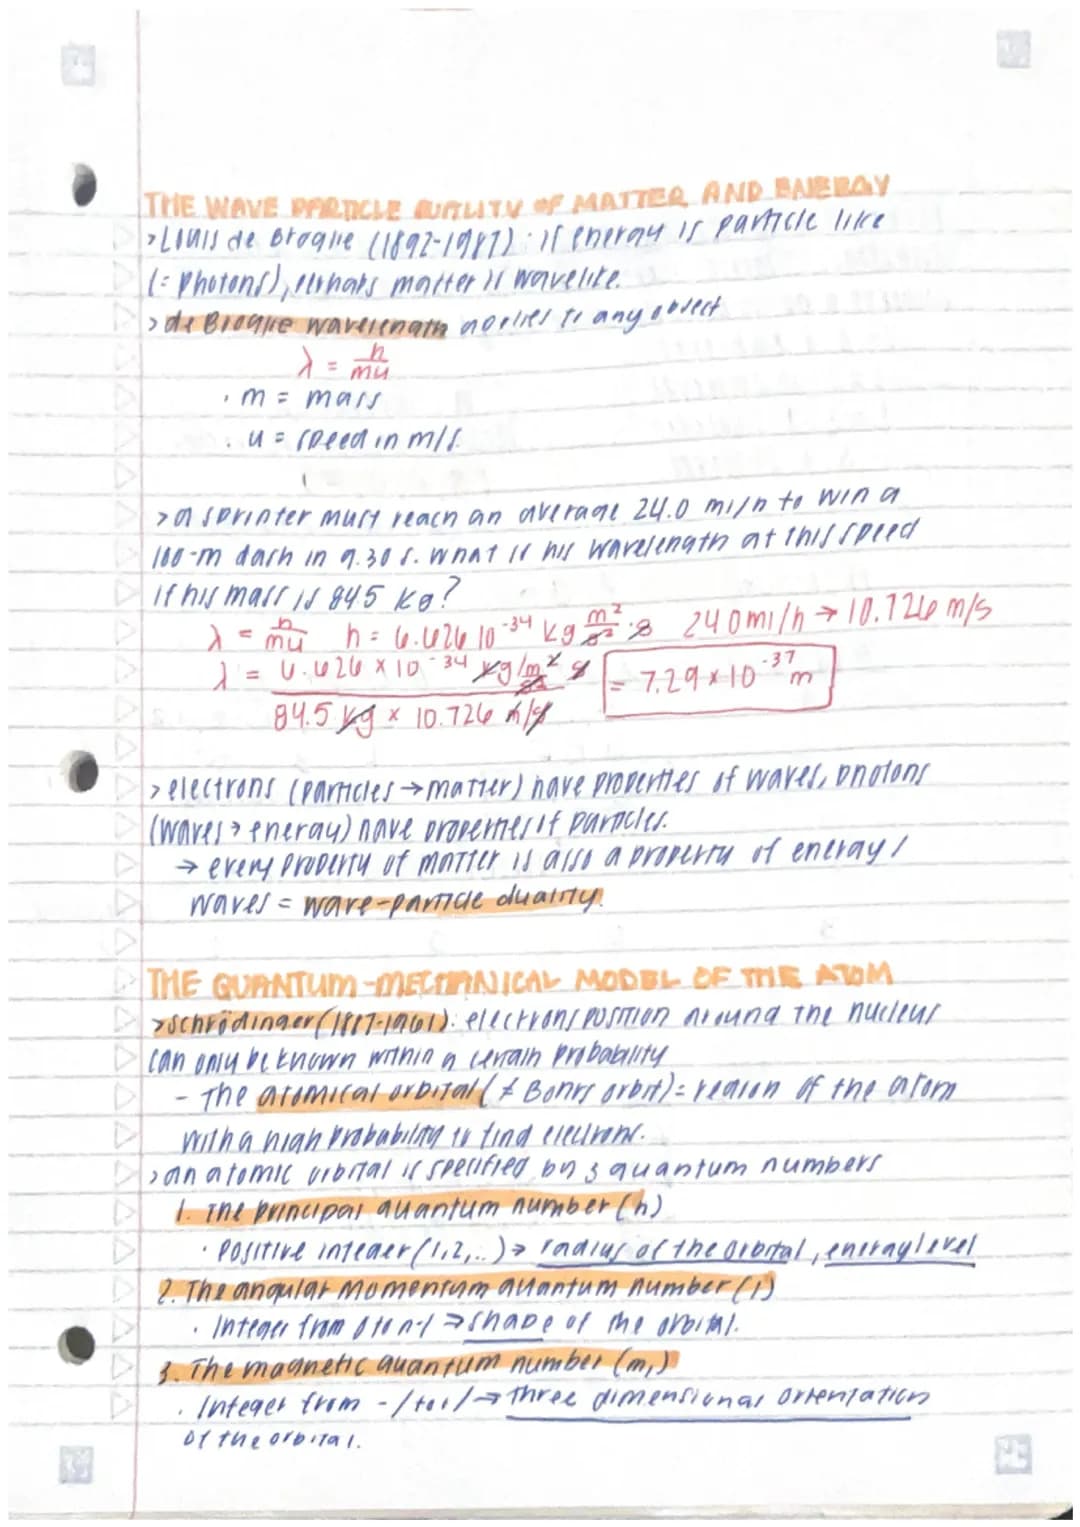 THE WAVE PARTICLE DUALITY OF MATTER AND ENERGY
> Louis de Broglie (1892-1987): if energy is particle like
(= photons), perhaps matter is wavelike.
> de Broglie wavelength applies to any object
λ = h/mu
· m = mass
· u = speed in m/s.
> a sprinter must reach an average 24.0 mi/h to win a
100-m dash in 9.30 s. what is his wavelength at this speed
if his mass is 84.5 kg?
λ = h/mu h = 6.626 10^-34 kg m²/s² · s 24.0 mi/h → 10.726 m/s
λ = 6.626 × 10^-34 kg/m²/s² s = 7.29 × 10^-37 m
84.5 kg × 10.726 m/s
> electrons (particles → matter) have properties of waves, photons
(waves → energy) have properties of particles.
→ every property of matter is also a property of energy /
waves = wave-particle duality.
THE QUANTUM-MECHANICAL MODEL OF THE ATOM
> Schrödinger (1887-1961): electrons position around the nucleus
can only be known within a certain probability
- The atomical orbital (≠ Bohrs orbit) = region of the atom
with a high probability to find electrons.
> an atomic orbital is specified by 3 quantum numbers
1. The principal quantum number (n)
· Positive integer (1,2,..) → radius of the orbital, energy level
2. The angular momentum quantum number (l)
· Integer from 0 to n-1 → shape of the orbital.
3. The magnetic quantum number (m,)
· Integer from -l to l → three dimensional orientation
of the orbital.